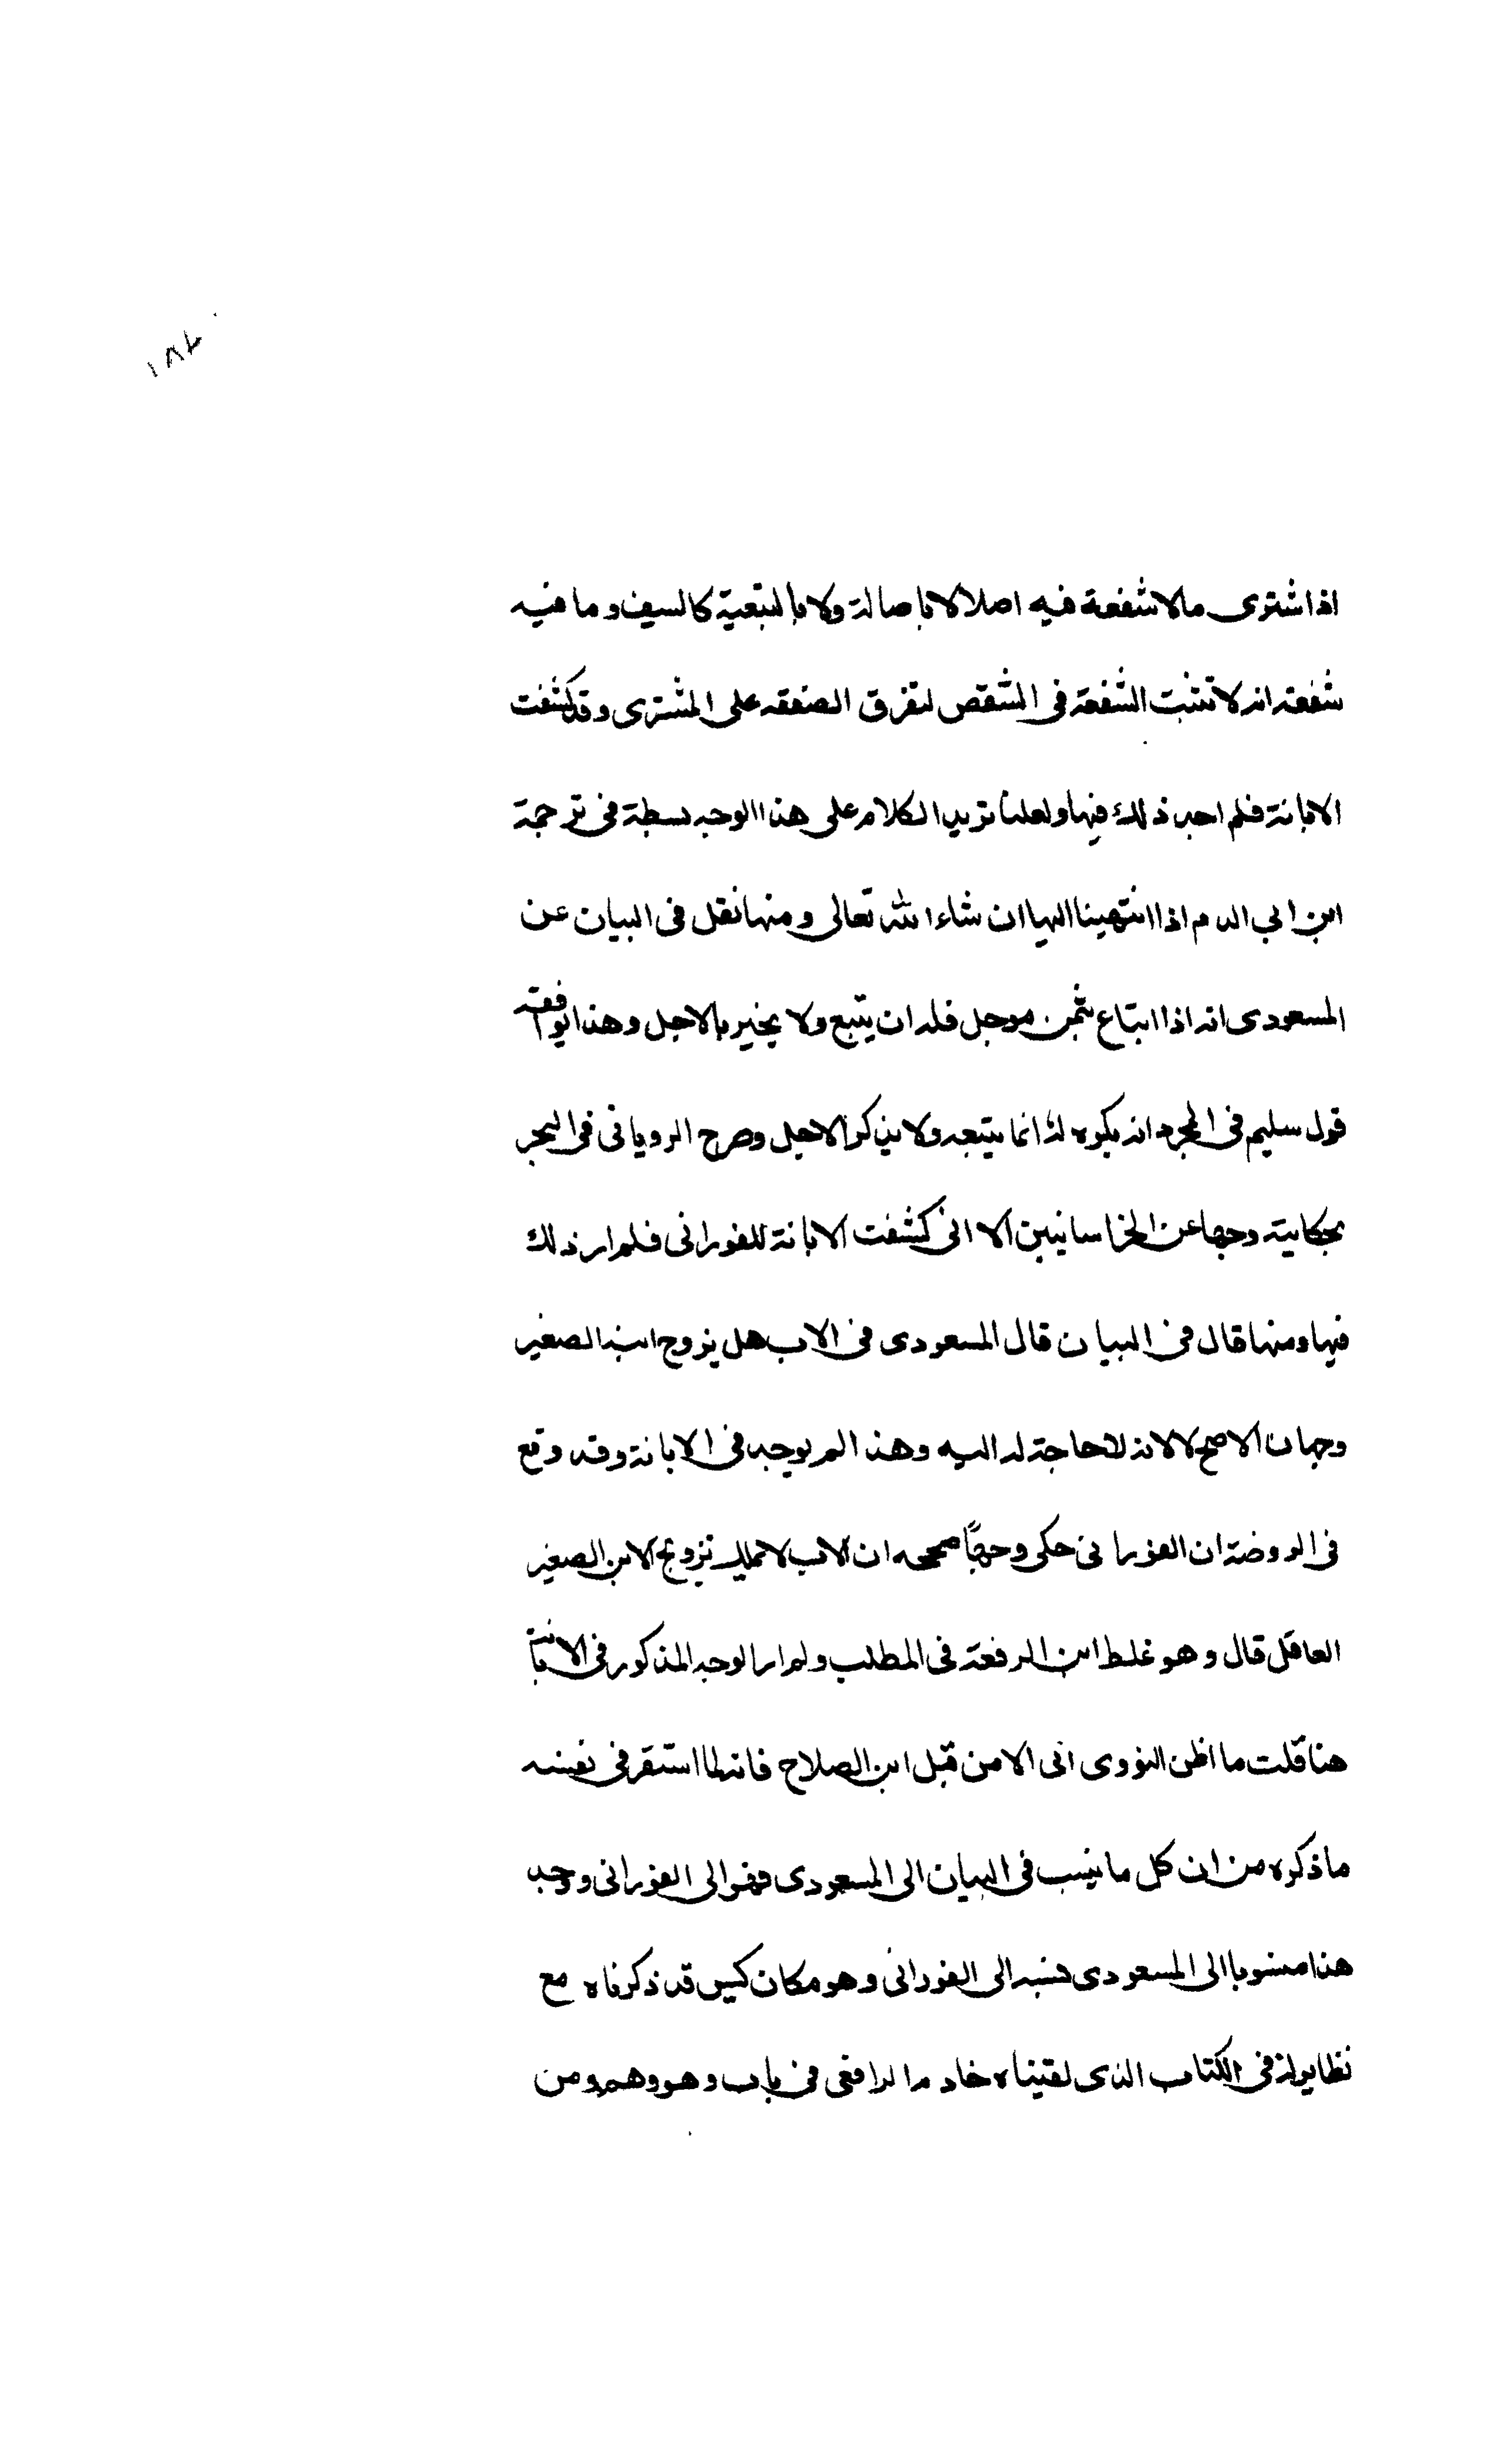 ١٨٧
اذا اشترى مالا شفعة فيه اصلا لا باصالة ولا بالتبعية كالسيف وما فيه
شفعة انه لا تثبت الشفعة فى الشقص لتفرق الصفقه على المشترى وقد كشفت
الابانة فلم اجد ذلك فيها ولعلنا نزيد الكلام على هذا الوجه بسطة فى ترجمة
ابن ابي الدم اذا انتهينا اليها ان شاء الله تعالى ومنها نقل فى البيان عن
المسعودى انه اذا ابتاع بثمن موجل فله ان يتبع ولا يخير بالاجل وهذا يوافقه
قول سليم فى المجرد انه يكره له انما يتبعه ولا يذكر الاجل وصرح الرويانى فى البحر
بحكايته وجها عن الخراسانيين الا انى كشفت الابانة للفورانى فلم ار ذلك
فيها ومنها قال فى البيان قال المسعودى فى الاب هل يزوج ابنه الصغير
وجهان الاصح لا لانه لا حاجة له اليه وهذا لم يوجد فى الابانة وقد وقع
فى الروضة ان الفورانى حكى وجهًا صححه ان الاب لا يملك تزويج الابن الصغير
العاقل قال وهو غلط ابن الرفعة فى المطلب ولم ار الوجه المذكور فى الابانة
هنا قلت ما اظن النووى اتى الا من قبل ابن الصلاح فانه لما استقر فى نفسه
ما ذكره من ان كل ما ينسب فى البيان الى المسعودى فهو الى الفورانى ووجد
هذا منسوبا الى المسعودى فنسبه الى الفورانى وهو مكان كيس قد ذكرناه مع
نظاير له فى الكتاب الذى لقبناه خادم الرافعى فى باب وهو وهم ومن